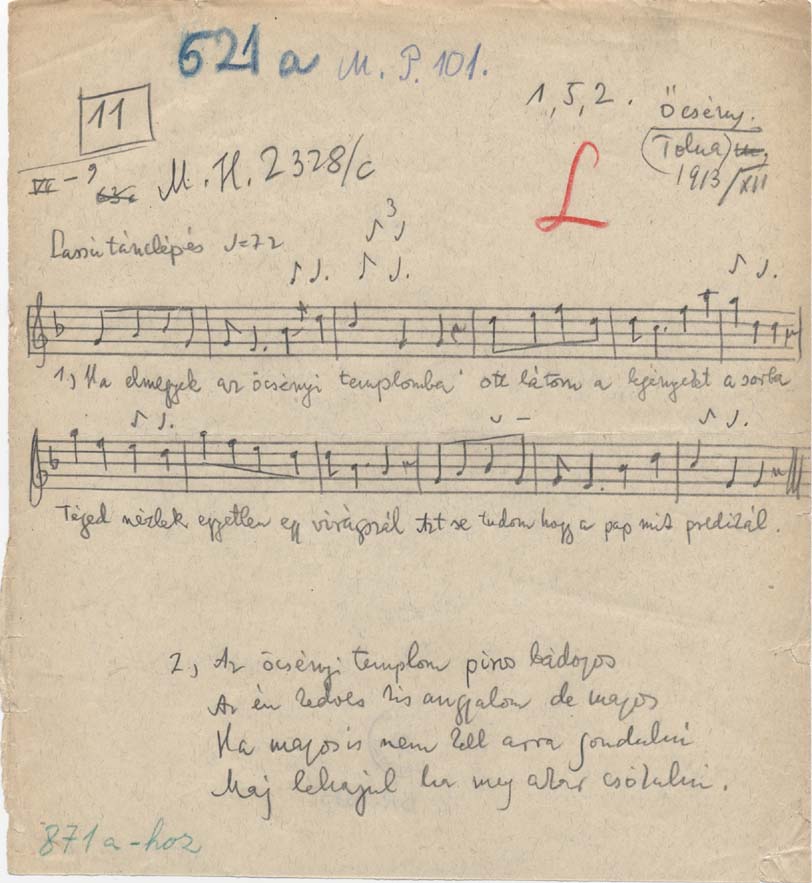 621 a M. P. 101.
11
1, 5, 2.
Őcsény.
(Tolna)
1913/XII
VI - 9
M. H. 2328/c
L
3
Lassú tánclépés ♩=72
1, Ha elmegyek az őcsényi templomba ott látom a legényeket a sorba
Téged nézlek egyetlen egy virágszál Azt se tudom hogy a pap mit predikál.
2, Az őcsényi templom piros bádogos
Az én kedves kis angyalom de magos
Ha magos is nem kell arra gondulni
Maj lehajul ha meg akar csókulni.
871a-hoz